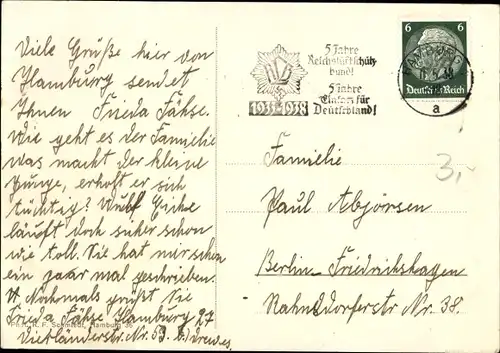 Viele Grüße hier von
Hamburg sendet
Ihnen Frieda Fähse.
Wie geht es der Familie
was macht der kleine
Junge, erholt er sich
tüchtig? Und
läuft doch sicher schon
wie toll. Sie hat mir schon
ein paar mal geschrieben.
Nochmals grüßt Sie
Frieda Fähse Hamburg 27
Vierländerstr. Nr. 59. b/ Drewes
Phot. H. F. Schmidt, Hamburg 36
5 Jahre
Reichsluftschutz-
bund!
5 Jahre
Einsatz für
Deutschland!
1933-1938
6 6
Deutsches Reich
HAMBURG
a
3,-
Familie
Paul Abjörsen
Berlin-Friedrichshagen
Rahnsdorferstr Nr. 38.